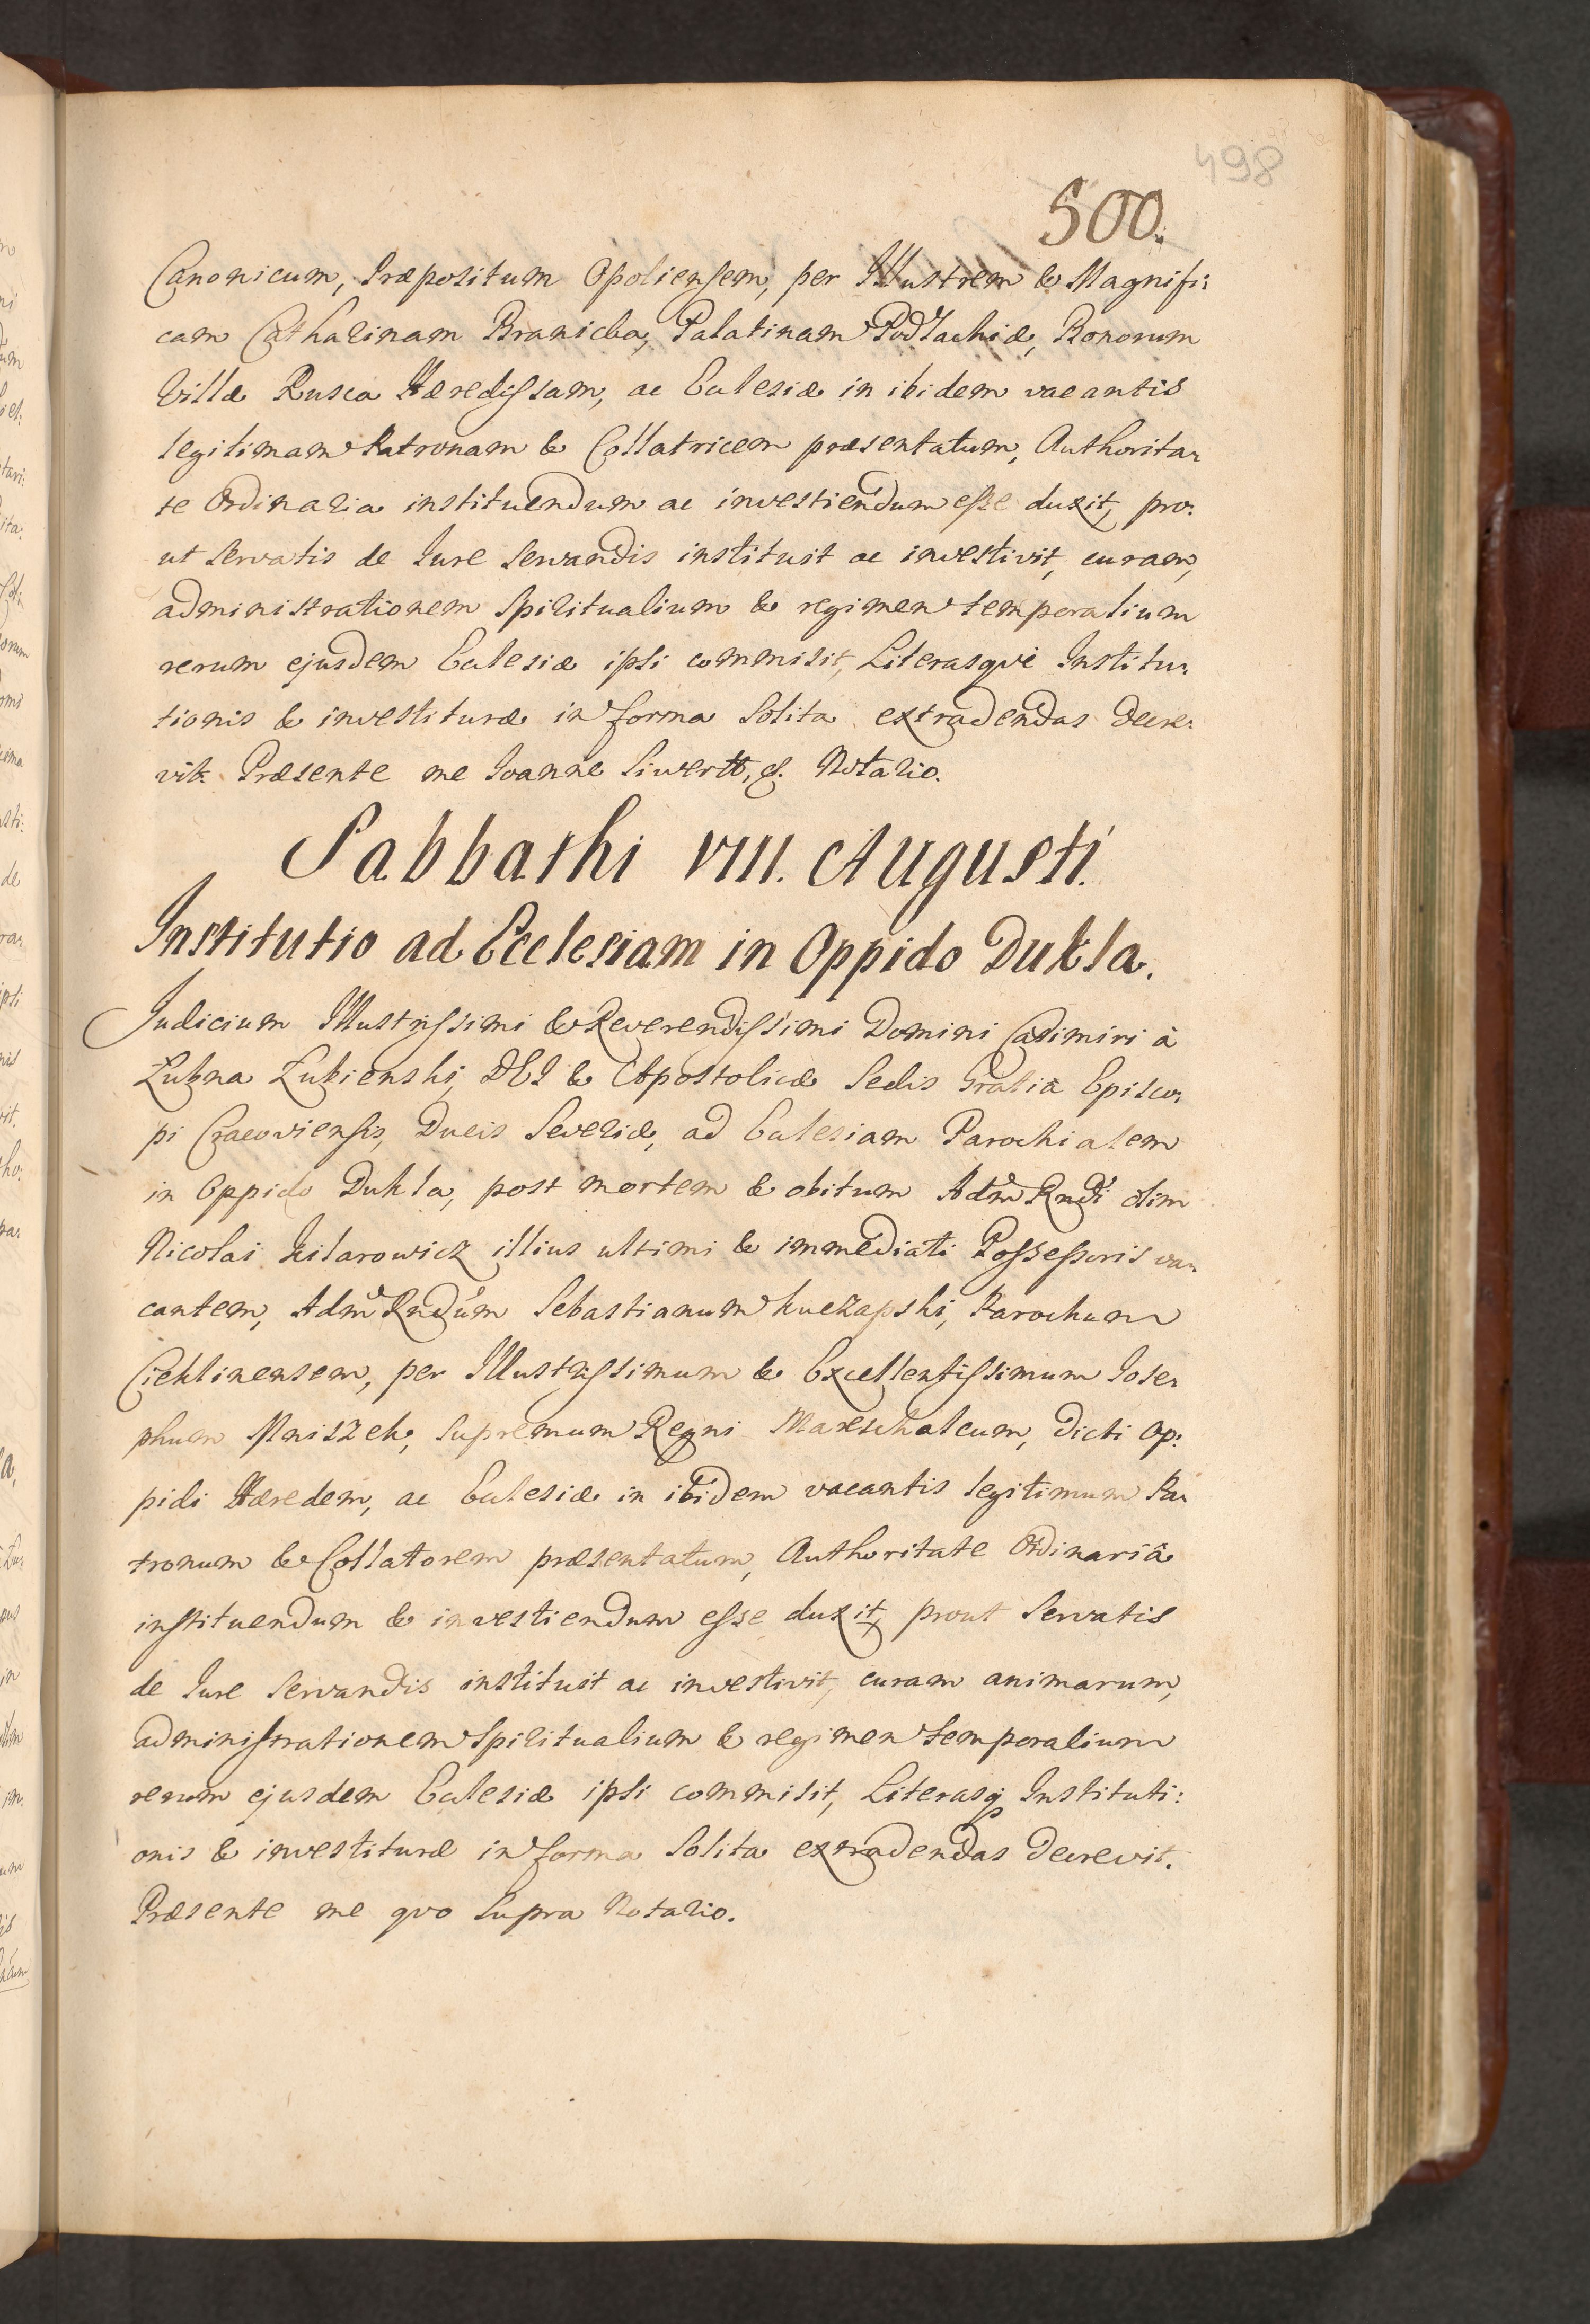 498
500.
Canonicum, Præpositum Opoliensem, per Illustrem & Magnifi:
cam Catharinam Branicka, Palatinam Podlachiæ, Bonorum
Villæ Rusca Hæredissam, ac Eclesiæ in ibidem vacantis
legitimam Patronam & Collatricem præsentatum, Authorita:
te Ordinaria instituendum ac investiendum esse duxit, pro:
ut servatis de Iure servandis instituit ac investivit, curam,
administrationem Spiritualium & regimen temporalium
rerum ejusdem Eclesiæ ipsi commisit, Literasqve Institu:
tionis & investituræ in forma solita extradendas decre:
vit. Præsente me Ioanne Siwertt, &. Notario.
Sabbathi VIII. Augusti.
Institutio ad Ecclesiam in Oppido Dukla.
Judicium Illustrissimi & Reverendissimi Domini Casimiri à
Łubna Łubienski, DEI & Apostolicæ Sedis Gratiâ Episco:
pi Cracoviensis, Ducis Severiæ, ad Eclesiam Parochialem
in Oppido Dukla, post mortem & obitum Adm Rndi olim
Nicolai Hilarowicz illius ultimi & immediati Possessoris va:
cantem, Adm Rndum Sebastianum Kuczapski, Parochum
Cieklinensem, per Illustrissimum & Excellentissimum Jose:
phum Mniszek, Supremum Regni Mareschalcum, dicti Op:
pidi Hæredem, ac Eclesiæ in ibidem vacantis legitimum Pa:
tronum & Collatorem præsentatum, Authoritate Ordinariâ
instituendum & investiendum esse duxit, prout servatis
de Iure servandis instituit ac investivit, curam animarum,
administrationem Spiritualium & regimen temporalium
rerum ejusdem Eclesiæ ipsi commisit, Literasq Instituti:
onis & investituræ in forma solita extradendas decrevit.
Præsente me qvo supra Notario.